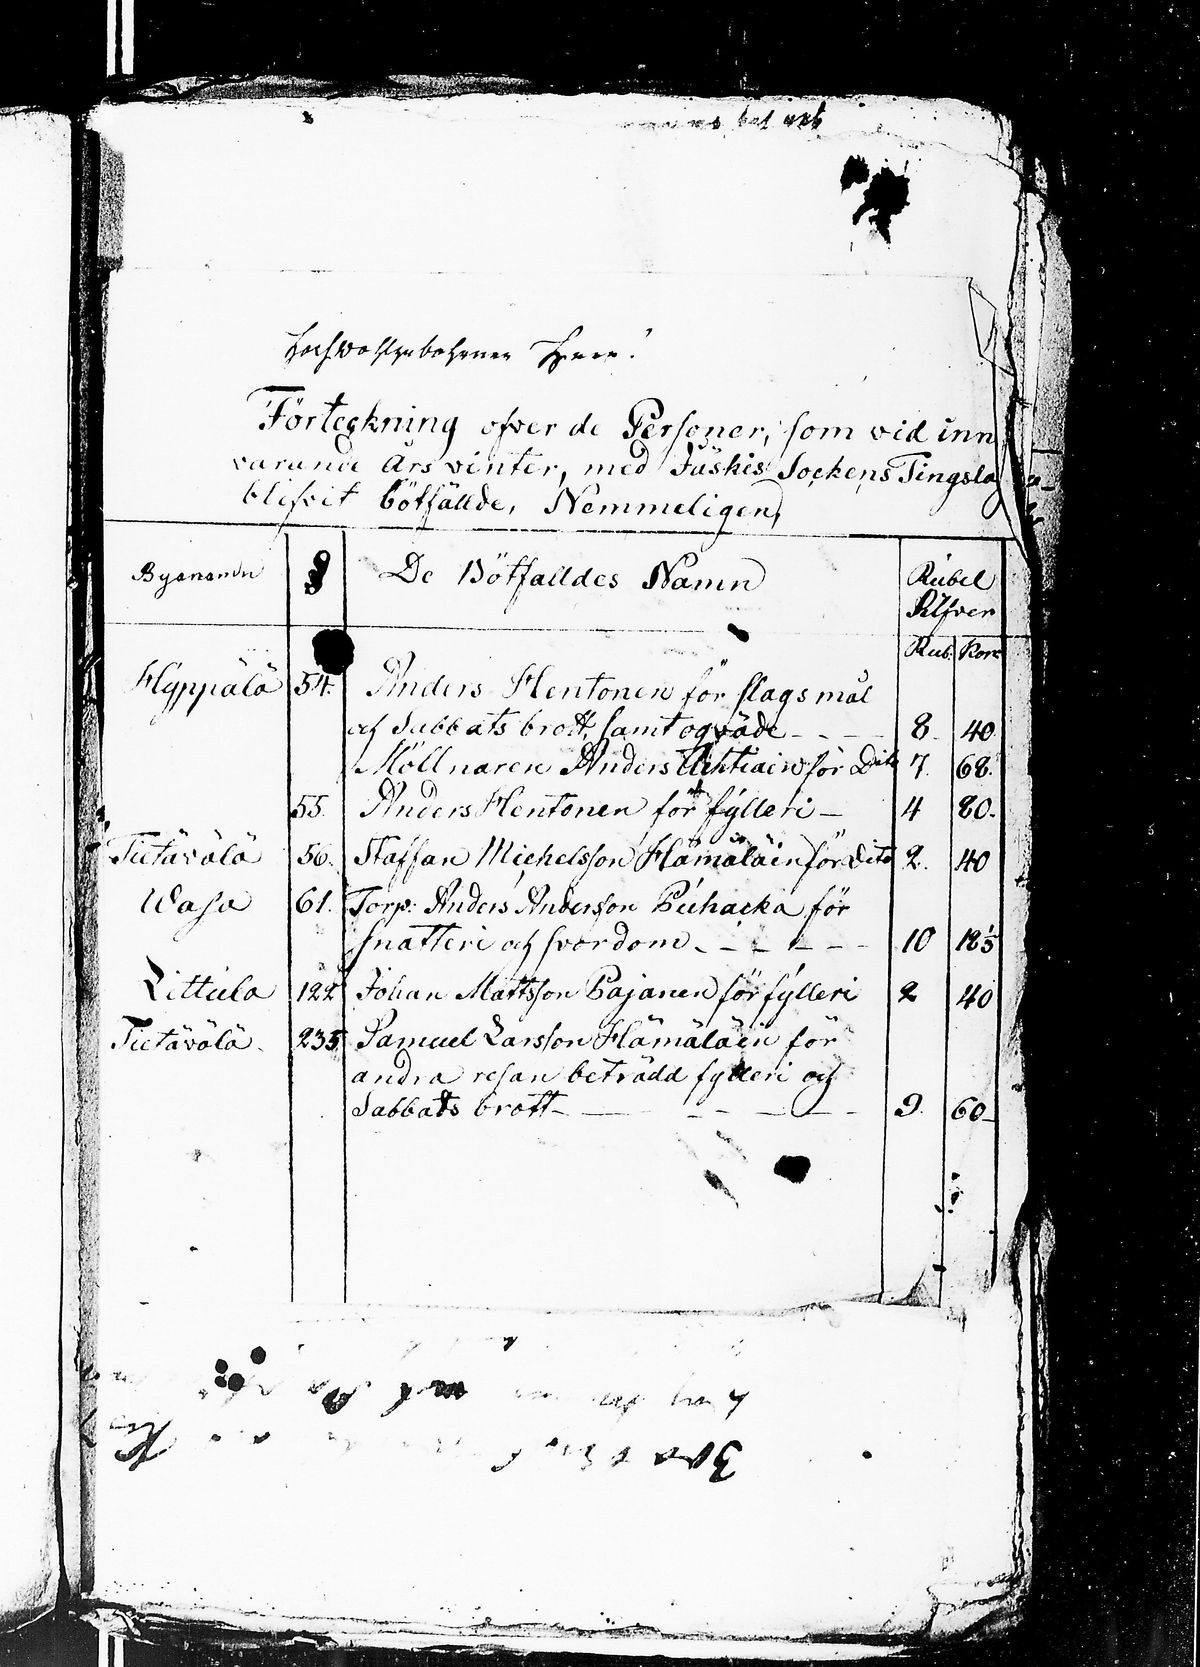 Hochwohlgebohrner Herr!
Förteckning öfver de Personer, som vid inn
varande års vinter, med Jäskis Sockens Tingsla
blifvit bötfällde, Nemmeligen,
Bynamn § De Bötfälldes Namn Rubel Silfver
Rub. Kop.
Hyppälä 54. Anders Hentonen för slagsmål
och Sabbats brott, samt oqväde - - - 8. 40
Möllnaren Anders Ahtiain för Dito 7. 68.
55. Anders Hentonen för fylleri - 4 80.
Tietävälä 56. Staffan Michelsson Hämäläin för Dito 2. 40
Wasa 61. Torp: Anders Andersson Puhacka för
snatteri och svordom - - - - - 10 18⅓
Littula 122 Johan Mattsson Pajanen för fylleri 2 40
Tietävälä. 235 Samuel Larsson Hämäläin för
andra resan beträdd fylleri och
Sabbats brott - - - - - 9. 60